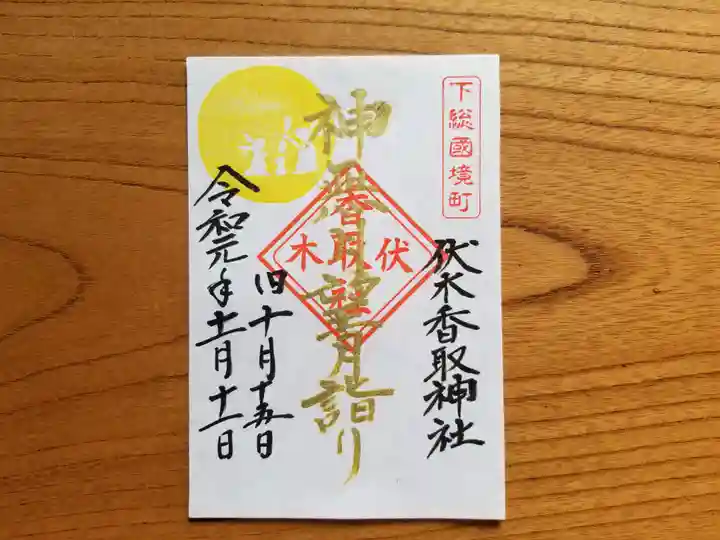 下総國境町
伏木香取神社
神暦望月詣り
伏木香取社
旧十月十五日
令和元年十一月十一日